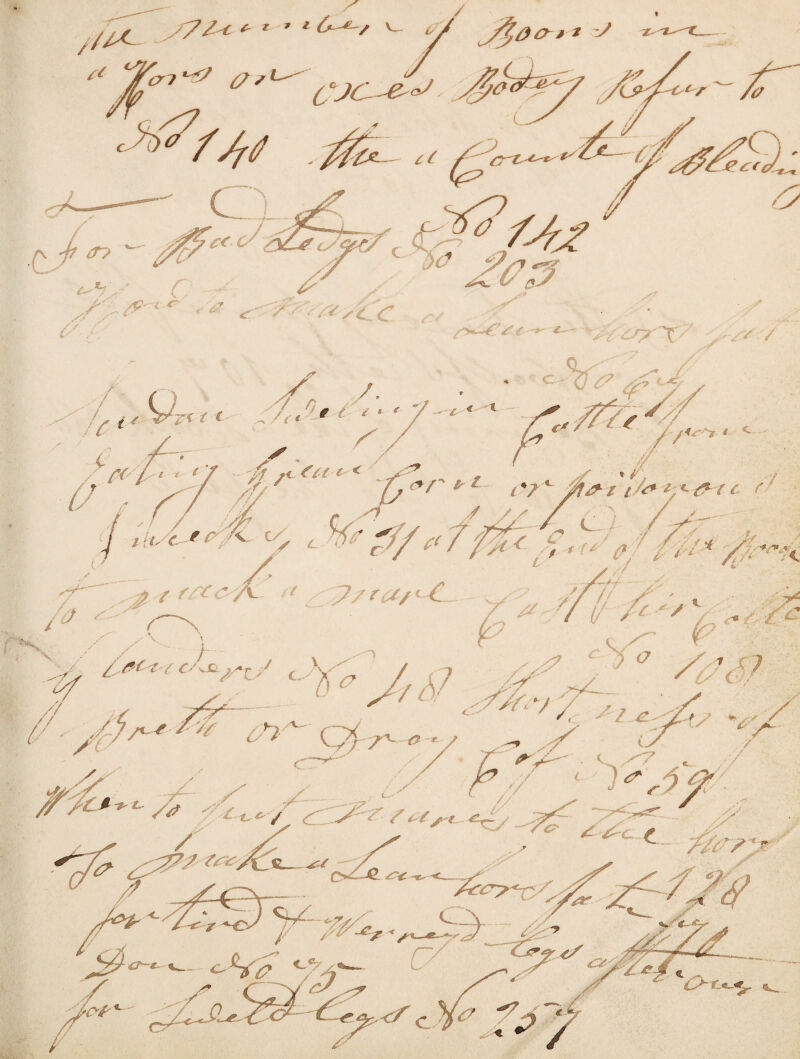 the number of Boons in
a Hors or oxes Bodey Refur to
No 140 the a Counte of Bleadin
For Bad Ledgs No 142
No 203
How to make a Lean hors fat
No 67
Soudan Sweling in Cattle from
Eating Grean Corn or poisonous
Sweeks No 31 at the End of the Boock
to mack a mare Cast hir Colte
No 108
Glanders No 48 Shortness of
Breth or Dray Cof No 59
When to put mares to the hors
128
To make a Lean hors fat 70
for tird & Werreyd legs after over
Don No 75
for Sweld legs No 257